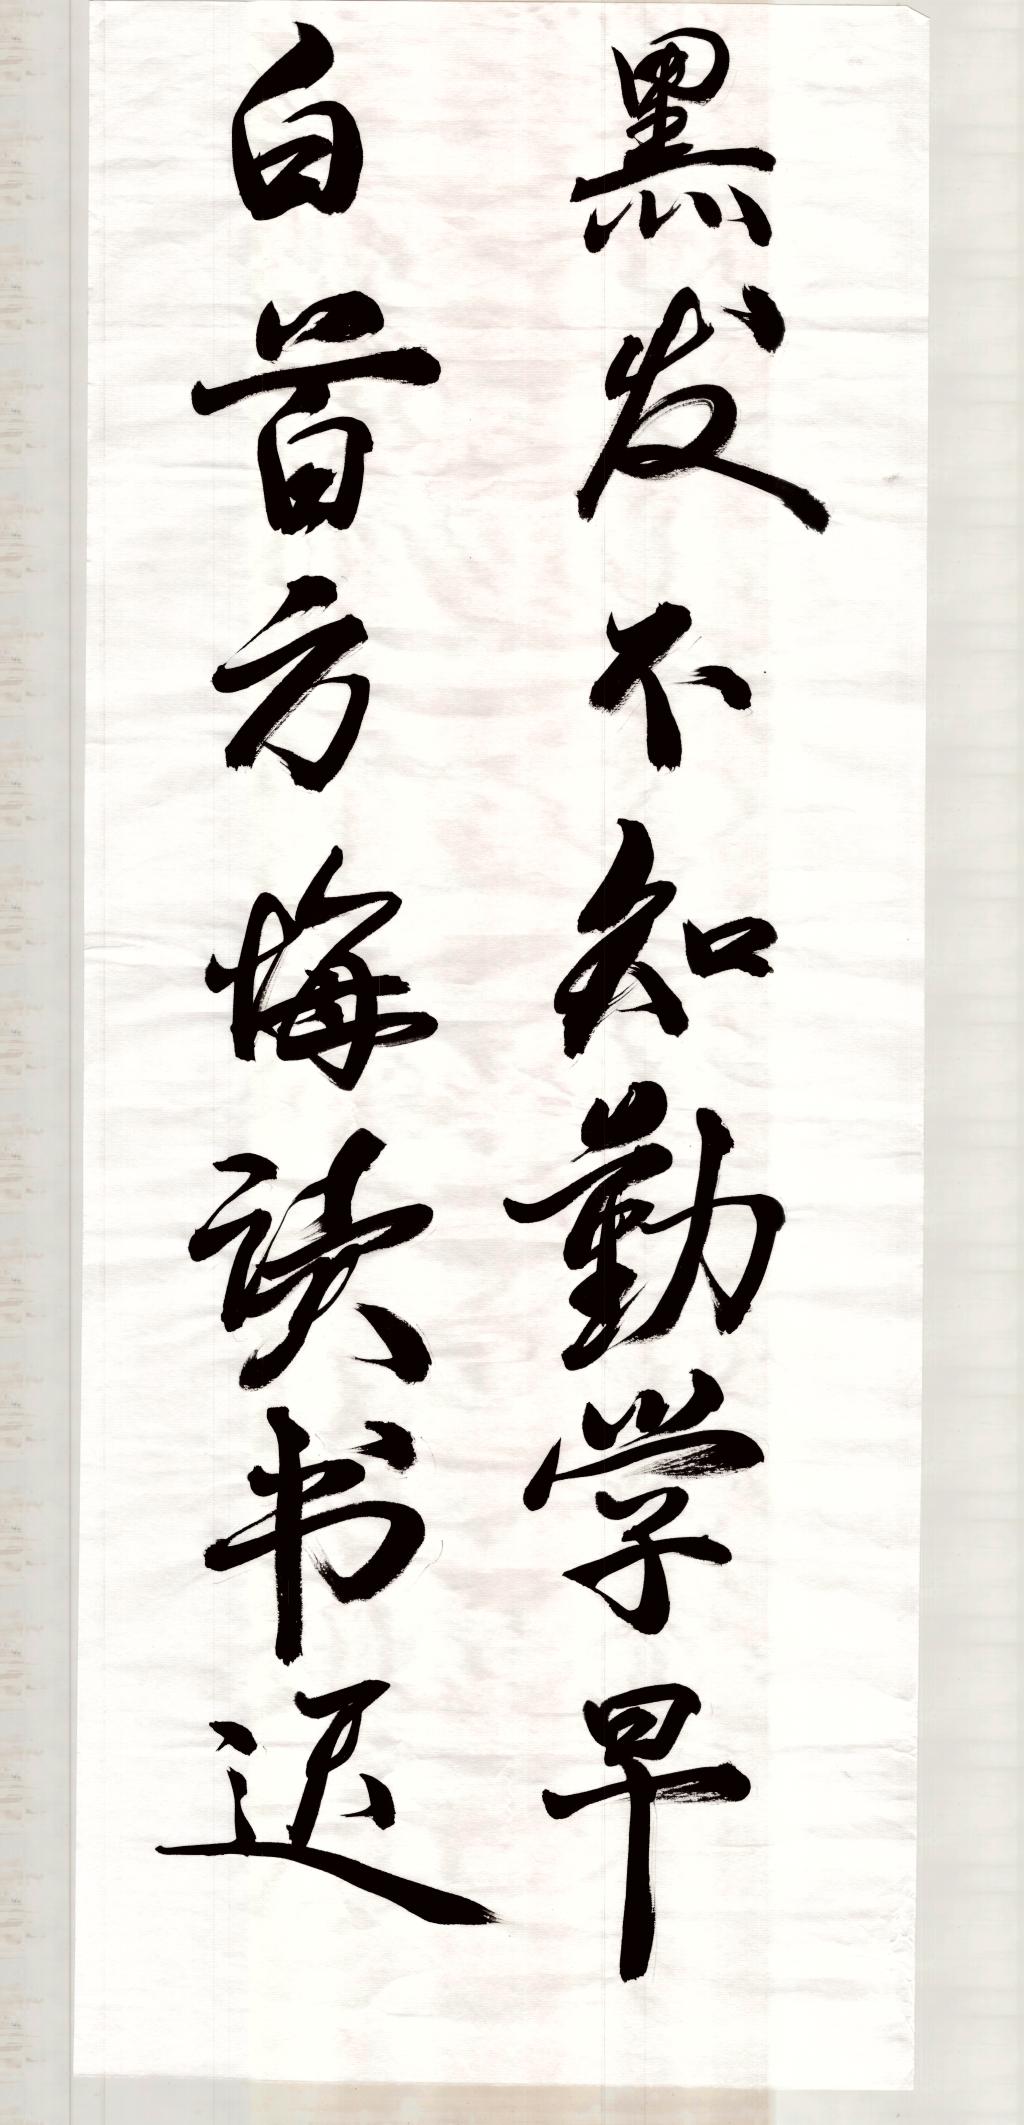 黑发不知勤学早
白首方悔读书迟